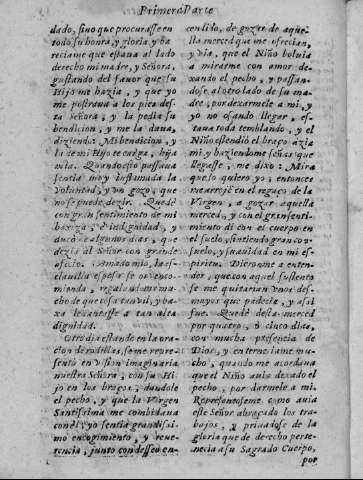 Primera Parte
dado, sino que procurasse en
todo su honra, y gloria, y ba
reciame que estaua al lado
derecho mi madre, y Señora,
gustando del fauor que su
Hijo me hazia, y que yo
me postraua a los pies des-
ta Señora, y la pedia su
bendicion, y me la daua,
diziendo: Mi bendicion, y
la de mi Hijo te caiga, hija
mia. Quando esto passaua
sentia muy inflamada la
voluntad, y un gozo, que
no se puede dezir. Quedè
con gran sentimiento de mi
baxeza, è indignidad, y
durò algunos dias, que
dezia al Señor con grande
afecto: Amado mio, la es-
clauilla esposa se os enco-
mienda, regalandome mu-
cho de que cosa tan vil, y ba-
xa leuantasse a tan alta
dignidad.
Otro dia estando en la ora-
cion de rodillas, se me repre-
sentò en vision imaginaria
nuestra Señora, con su Hi-
jo en los braços, dandole
el pecho, y que la Virgen
Santissima me combidaua
con èl: yo sentia grandissi-
mo encogimiento, y reue-
rencia, junto con desseo en-
cendido, de gozar de aque-
lla merced que me ofrecian,
y via, que el Niño boluia
a mirarme con amor de-
xando el pecho, y passan-
dose al otro lado de su ma-
dre, por dexarmele a mi, y
yo no osando llegar, es-
taua toda temblando, y el
Niño estendiò el braço azia
mi, y haziendome señas que
llegasse, me dixo: Mira
que lo quiero yo; entonces
me arrojè en el regaço de la
Virgen, a gozar aquella
merced, y con el gran senti-
miento di con el cuerpo en
el suelo, sintiendo gran con-
suelo, y suauidad en mi es-
piritu. Dieronme a enten-
der, que con aquel sustento
se me quitarian vnos des-
mayos que padecia, y assi
fue. Quedè desta merced
por quatro, ò cinco dias,
con mucha presencia de
Dios, y enternecia me mu-
cho, quando me acordaua
que el Niño auia dexado el
pecho, por darmele a mi.
Representoseme como auia
este Señor abraçado los tra-
bajos, y priuadose de la
gloria que de derecho perte-
necia a su Sagrado Cuerpo,
por